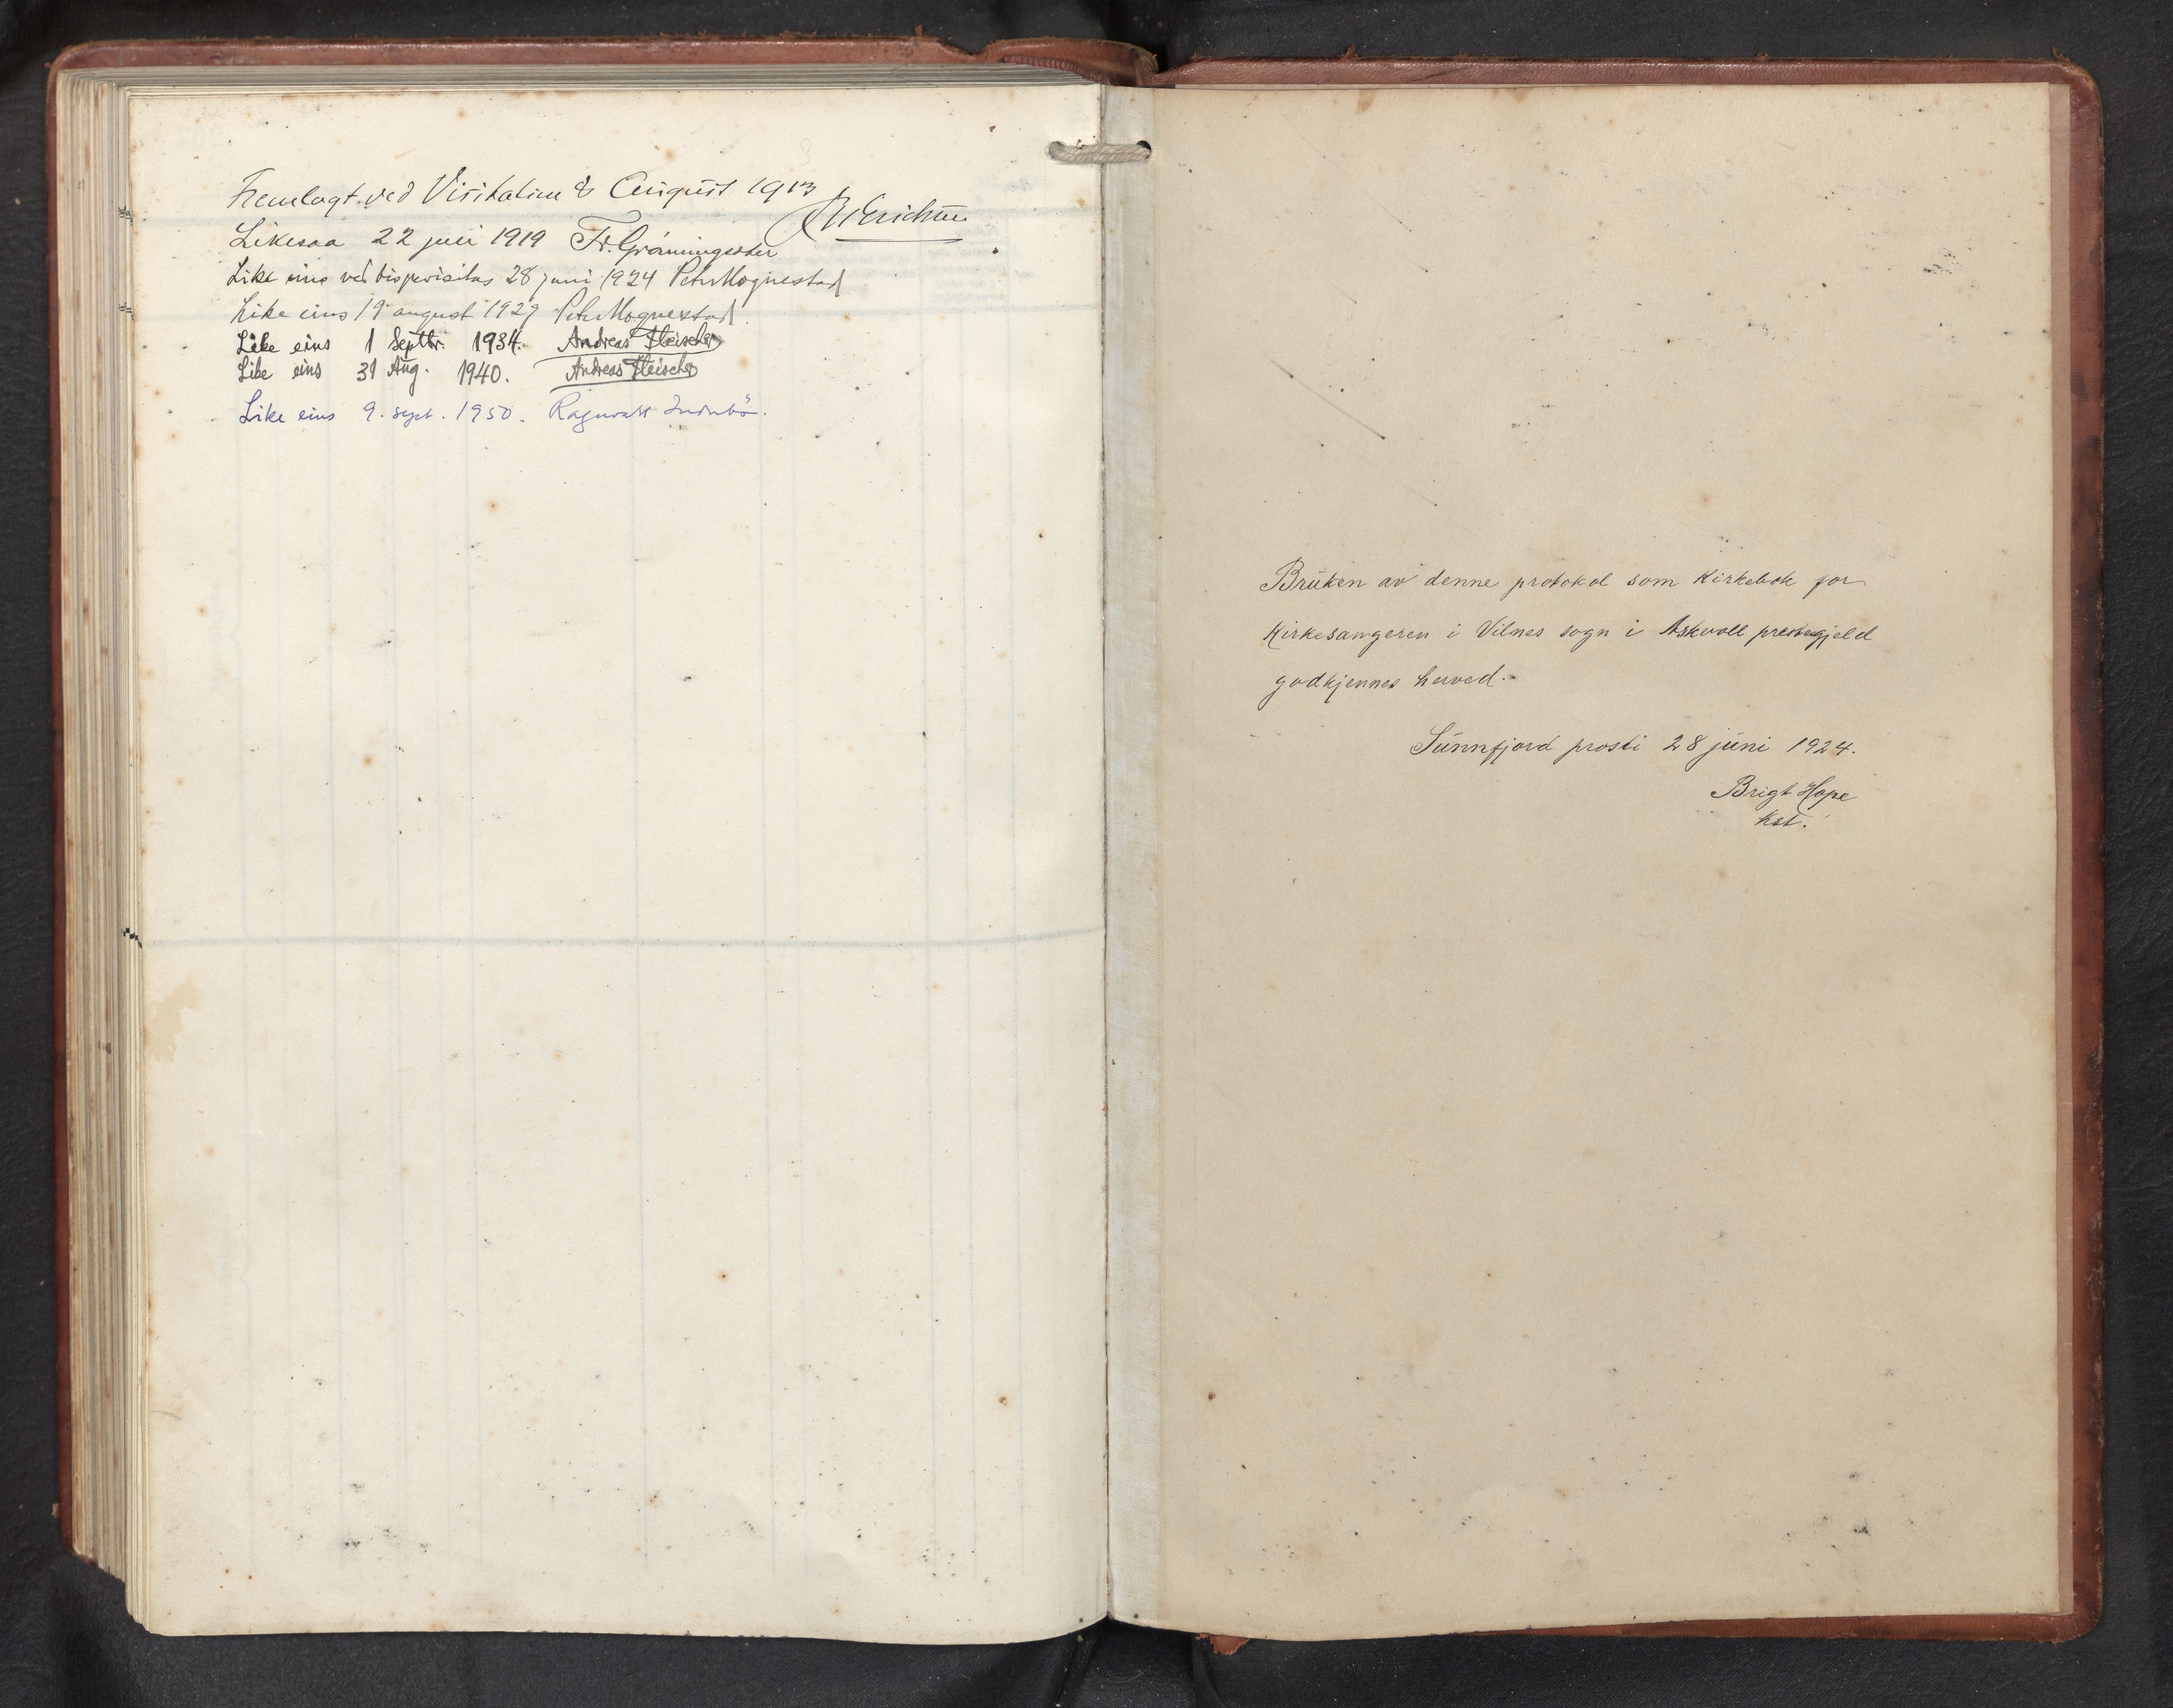 Fremlagt ved Visitatien 8 August 1913
Erichsen
Likesaa 22 juli 1919 Fr. Grønningsæter
Like eins ved bispevisitas 28 juni 1924 Peter Hognestad
Like eins 19 august 1929 Peter Hognestad
Like eins 1 Septbr. 1934. Andreas Fleischer
Like eins 31 Aug. 1940. Andreas Fleischer
Like eins 9. sept. 1950. Ragnvald Indrebö.
Brüken av denne protokol som Kirkebok for
Kirkesangeren i Vilnes sogn i Askvoll prestegjeld
godkjennes herved.
Sünnfjord prosti 28 jüni 1924.
Brigt Hope
kst.